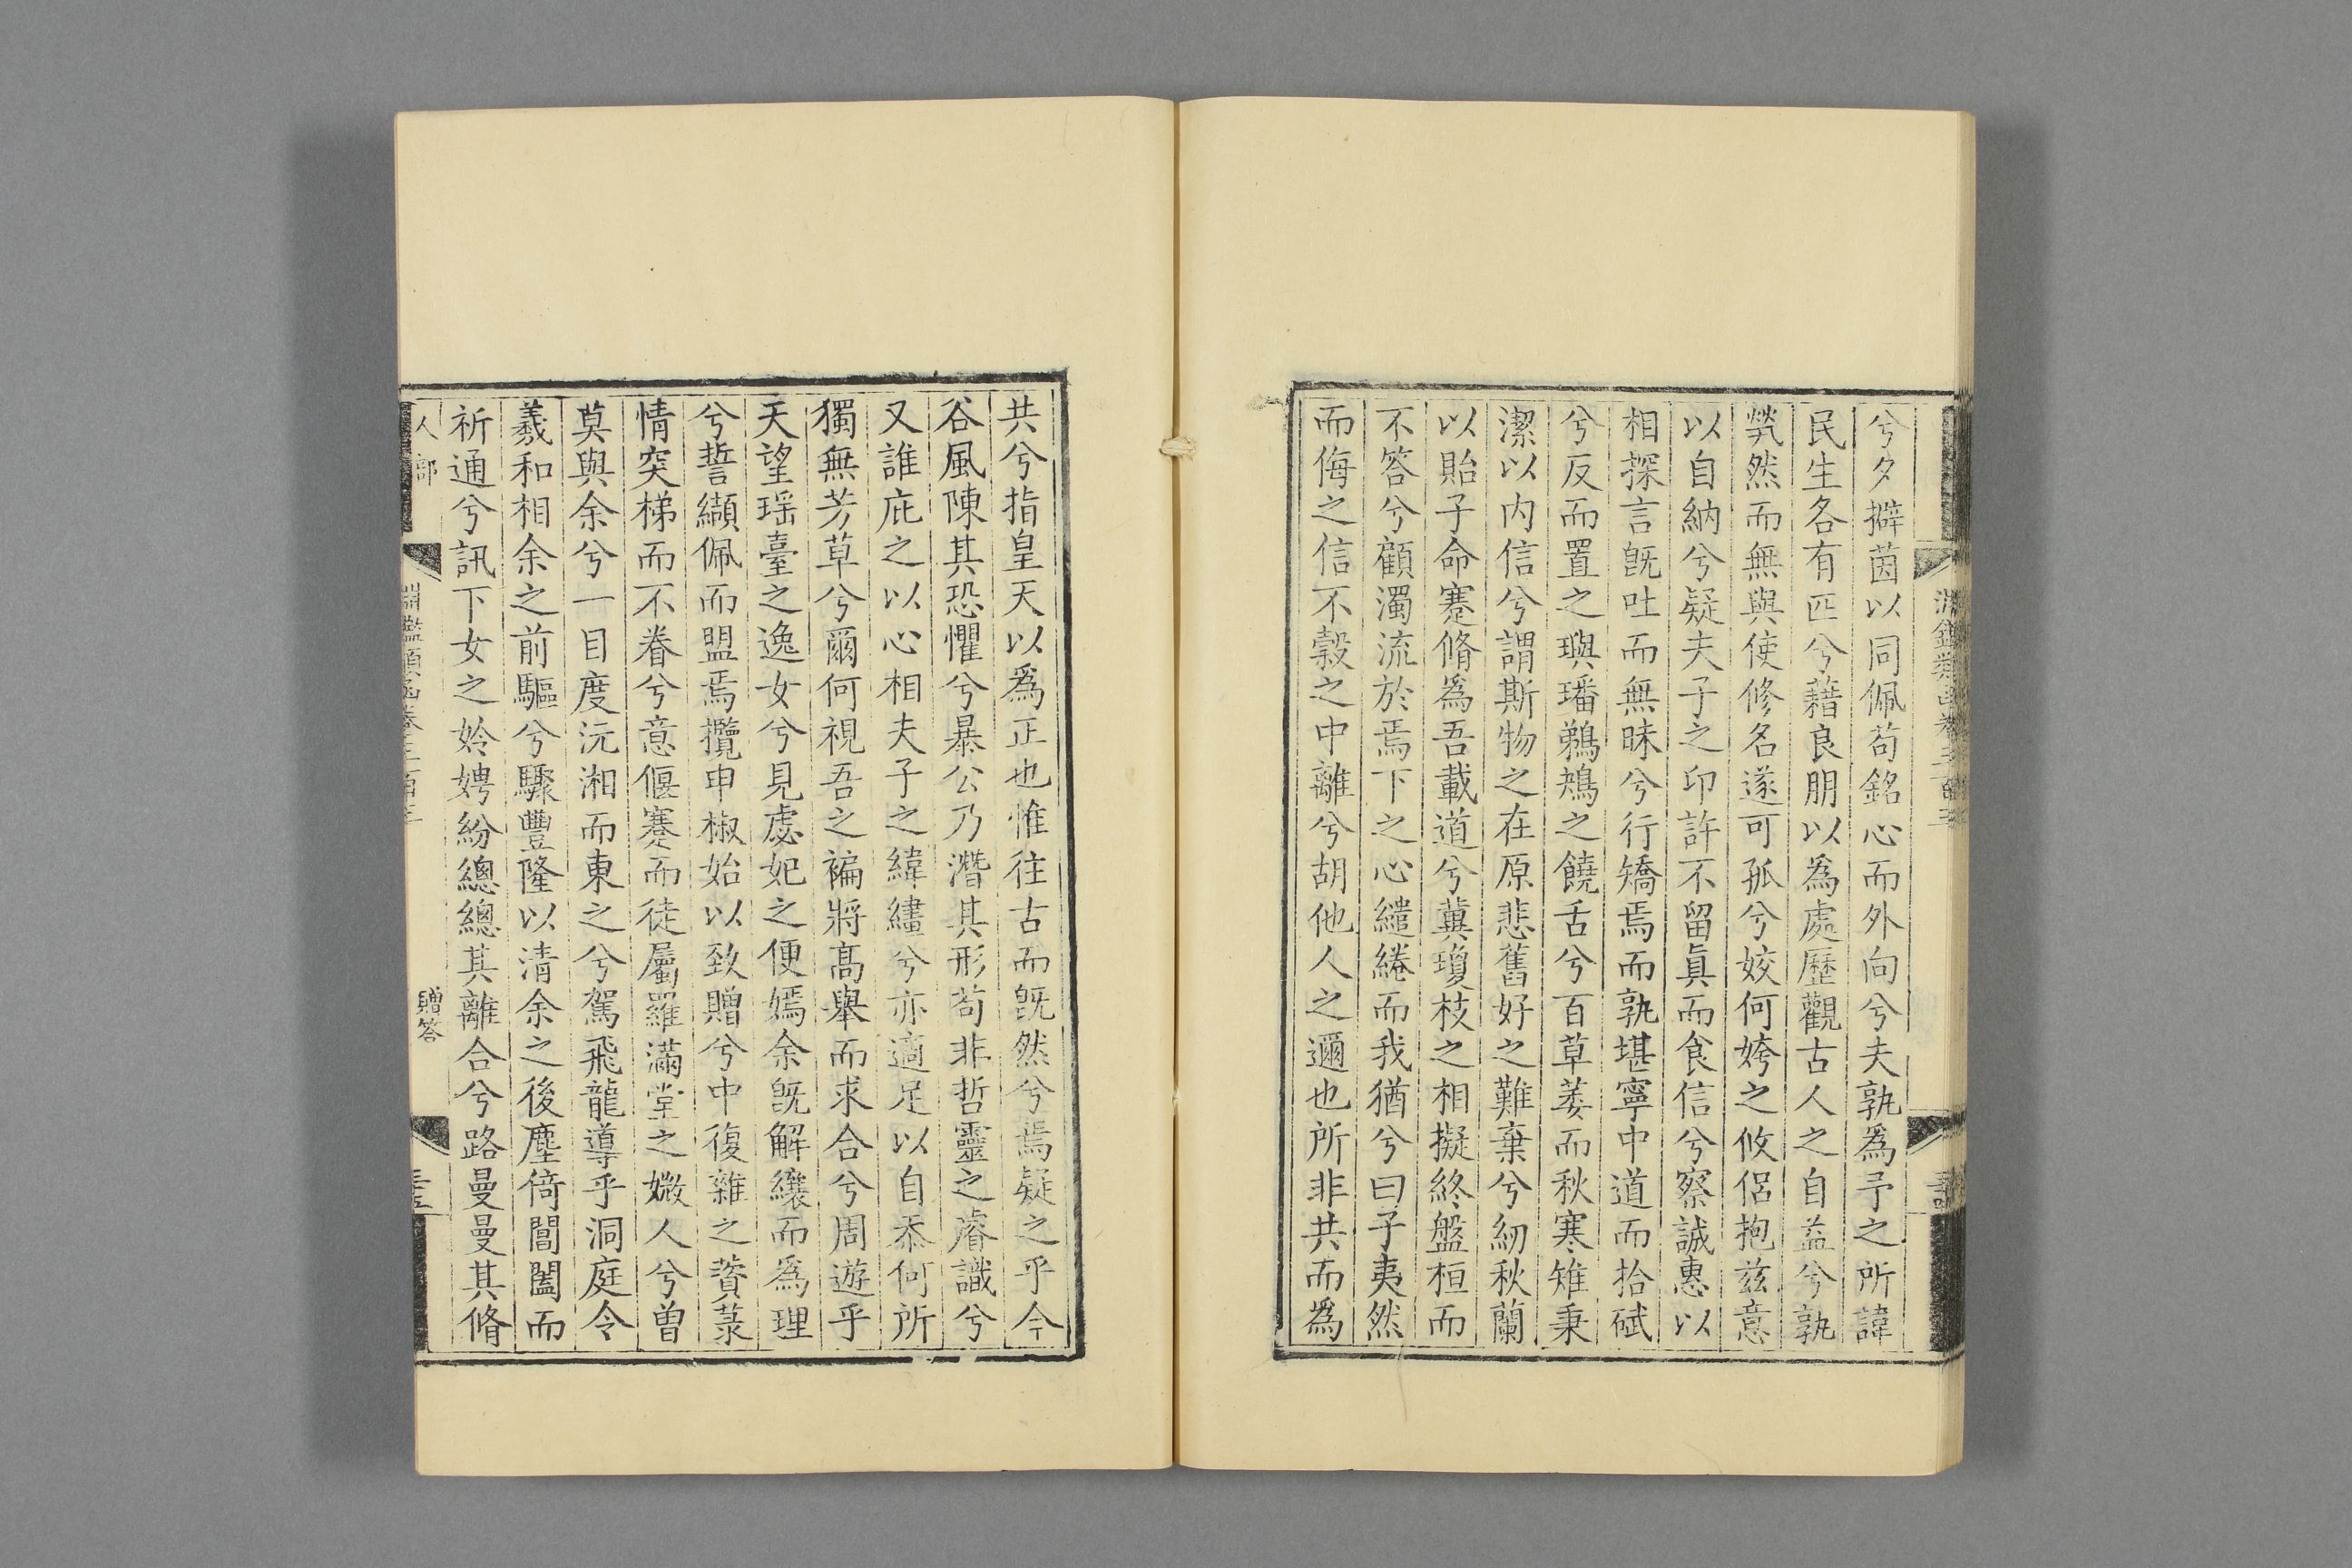 兮夕擗茵以同佩茍銘心而外向兮夫孰爲予之所諱
民生各有匹兮藉良朋以爲處歷觀古人之自益兮孰
煢然而無與使修名遂可孤兮姣何姱之攸侶抱兹意
以自納兮疑夫子之印許不留眞而食信兮察誠惠以
相探言旣吐而無昧兮行矯焉而孰堪寧中道而拾碔
兮反而置之璵璠鵜鴂之饒舌兮百草萎而秋寒雉秉
潔以内信兮謂斯物之在原悲舊好之難棄兮紉秋蘭
以貽子命蹇脩爲吾載道兮冀瓊枝之相擬終盤桓而
不答兮顧濁流於焉下之心繾綣而我猶兮曰子夷然
而侮之信不穀之中離兮胡他人之邇也所非共而爲
共兮指皇天以爲正也惟往古而旣然兮焉疑之乎今
谷風陳其恐懼兮暴公乃潛其形茍非哲靈之睿識兮
又誰庇之以心相夫子之緯繣兮亦適足以自忝何所
獨無芳草兮爾何視吾之褊將高舉而求合兮周遊乎
天望瑶臺之逸女兮見虙妃之便嫣余旣解纕而爲理
兮誓纈佩而盟焉攬申椒始以致贈兮中復雜之薋菉
情突梯而不眷兮意偃蹇而徒屬羅滿堂之媺人兮曾
莫與余兮一目度沅湘而東之兮駕飛龍導乎洞庭令
羲和相余之前驅兮驟豐隆以清余之後塵倚閶闔而
祈通兮訊下女之姈娉紛總總其離合兮路曼曼其脩
人部
淵鑑類函卷三百三
贈答
三五